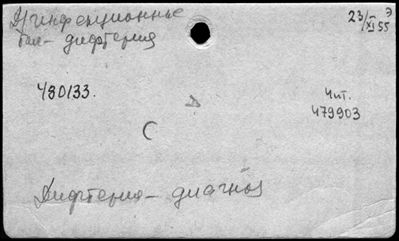 Д/инфекционные
бол- дифтерия
23/XI 55 Э
480133.
Чит.
479903
С
Дифтерия - диагноз